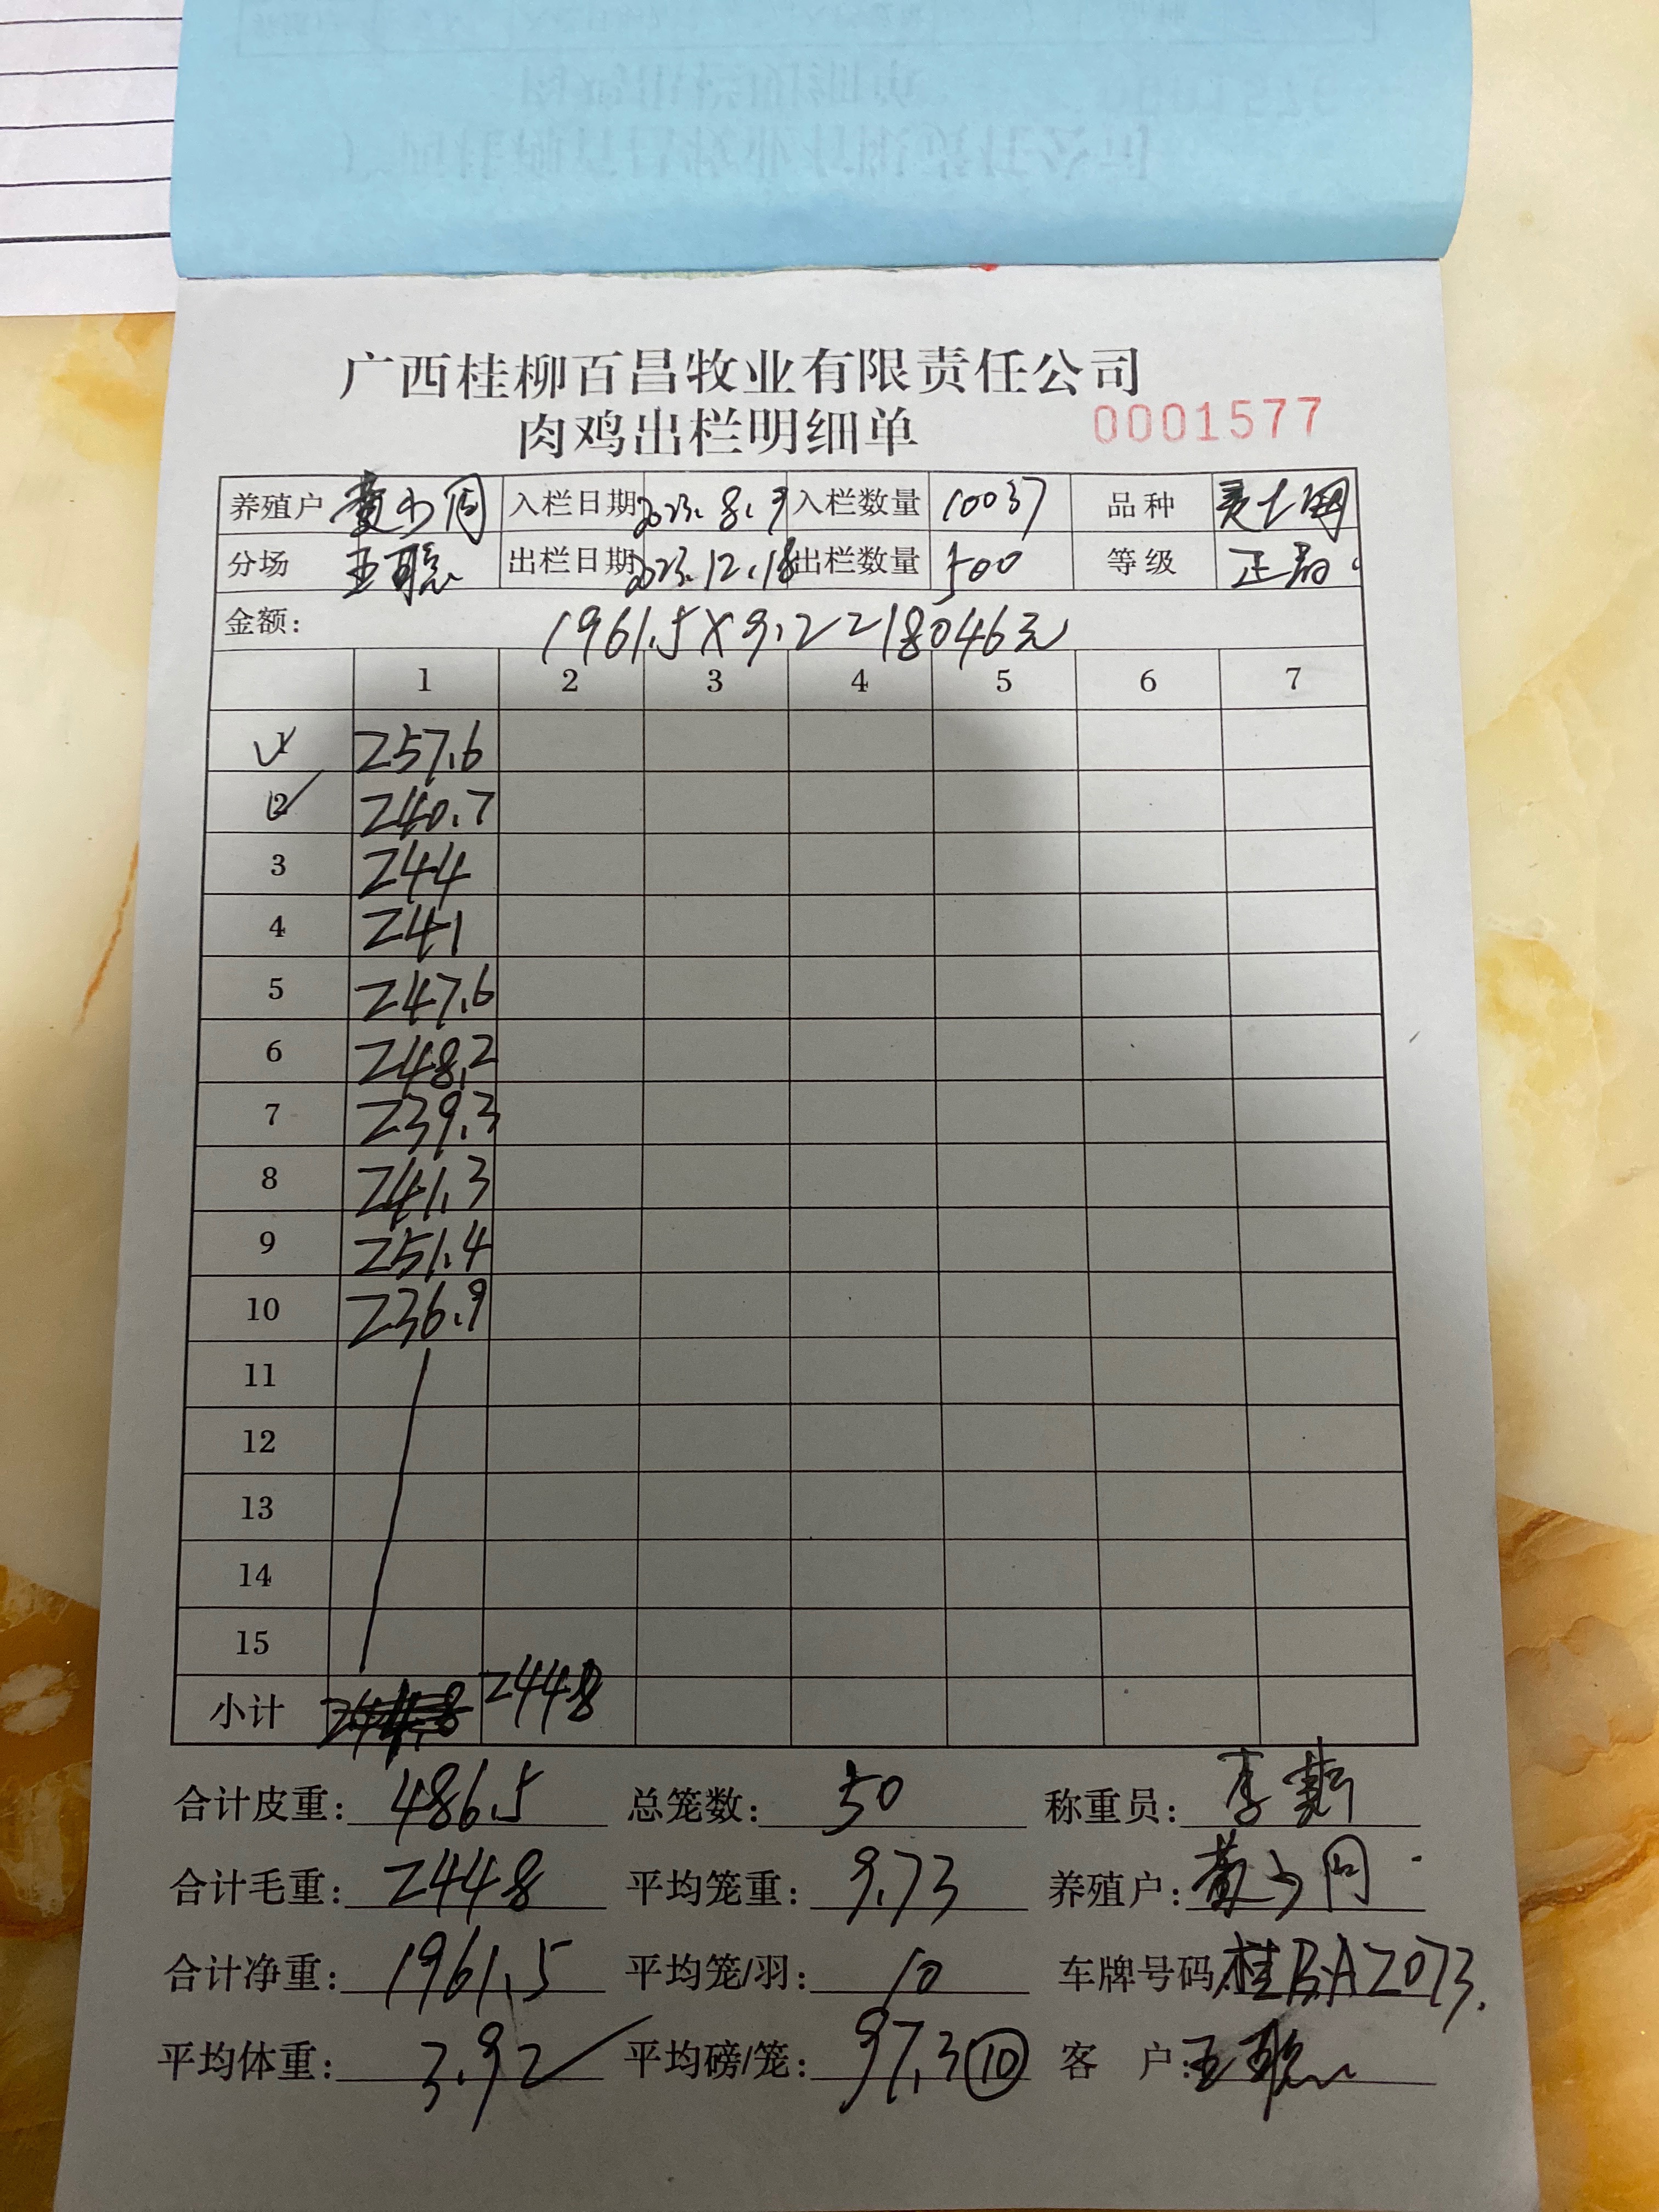 广西桂柳百昌牧业有限责任公司
肉鸡出栏明细单 0001577
养殖户 入栏日期 2023.8.9 入栏数量 10037 品种
分场 王聪 出栏日期 2023.12.18 出栏数量 500 等级 正品
金额: 1961.5×9.2=18046元
1 2 3 4 5 6 7
1 257.6
2 240.7
3 244
4 241
5 247.6
6 248.2
7 239.3
8 241.3
9 251.4
10 236.9
11
12
13
14
15
小计 2448
合计皮重: 486.5 总笼数: 50 称重员: 李
合计毛重: 2448 平均笼重: 9.73 养殖户: 黄
合计净重: 1961.5 平均笼/羽: 10 车牌号码: 桂B·A2073
平均体重: 3.92 平均磅/笼: 97.3 ⑩ 客 户: 王聪